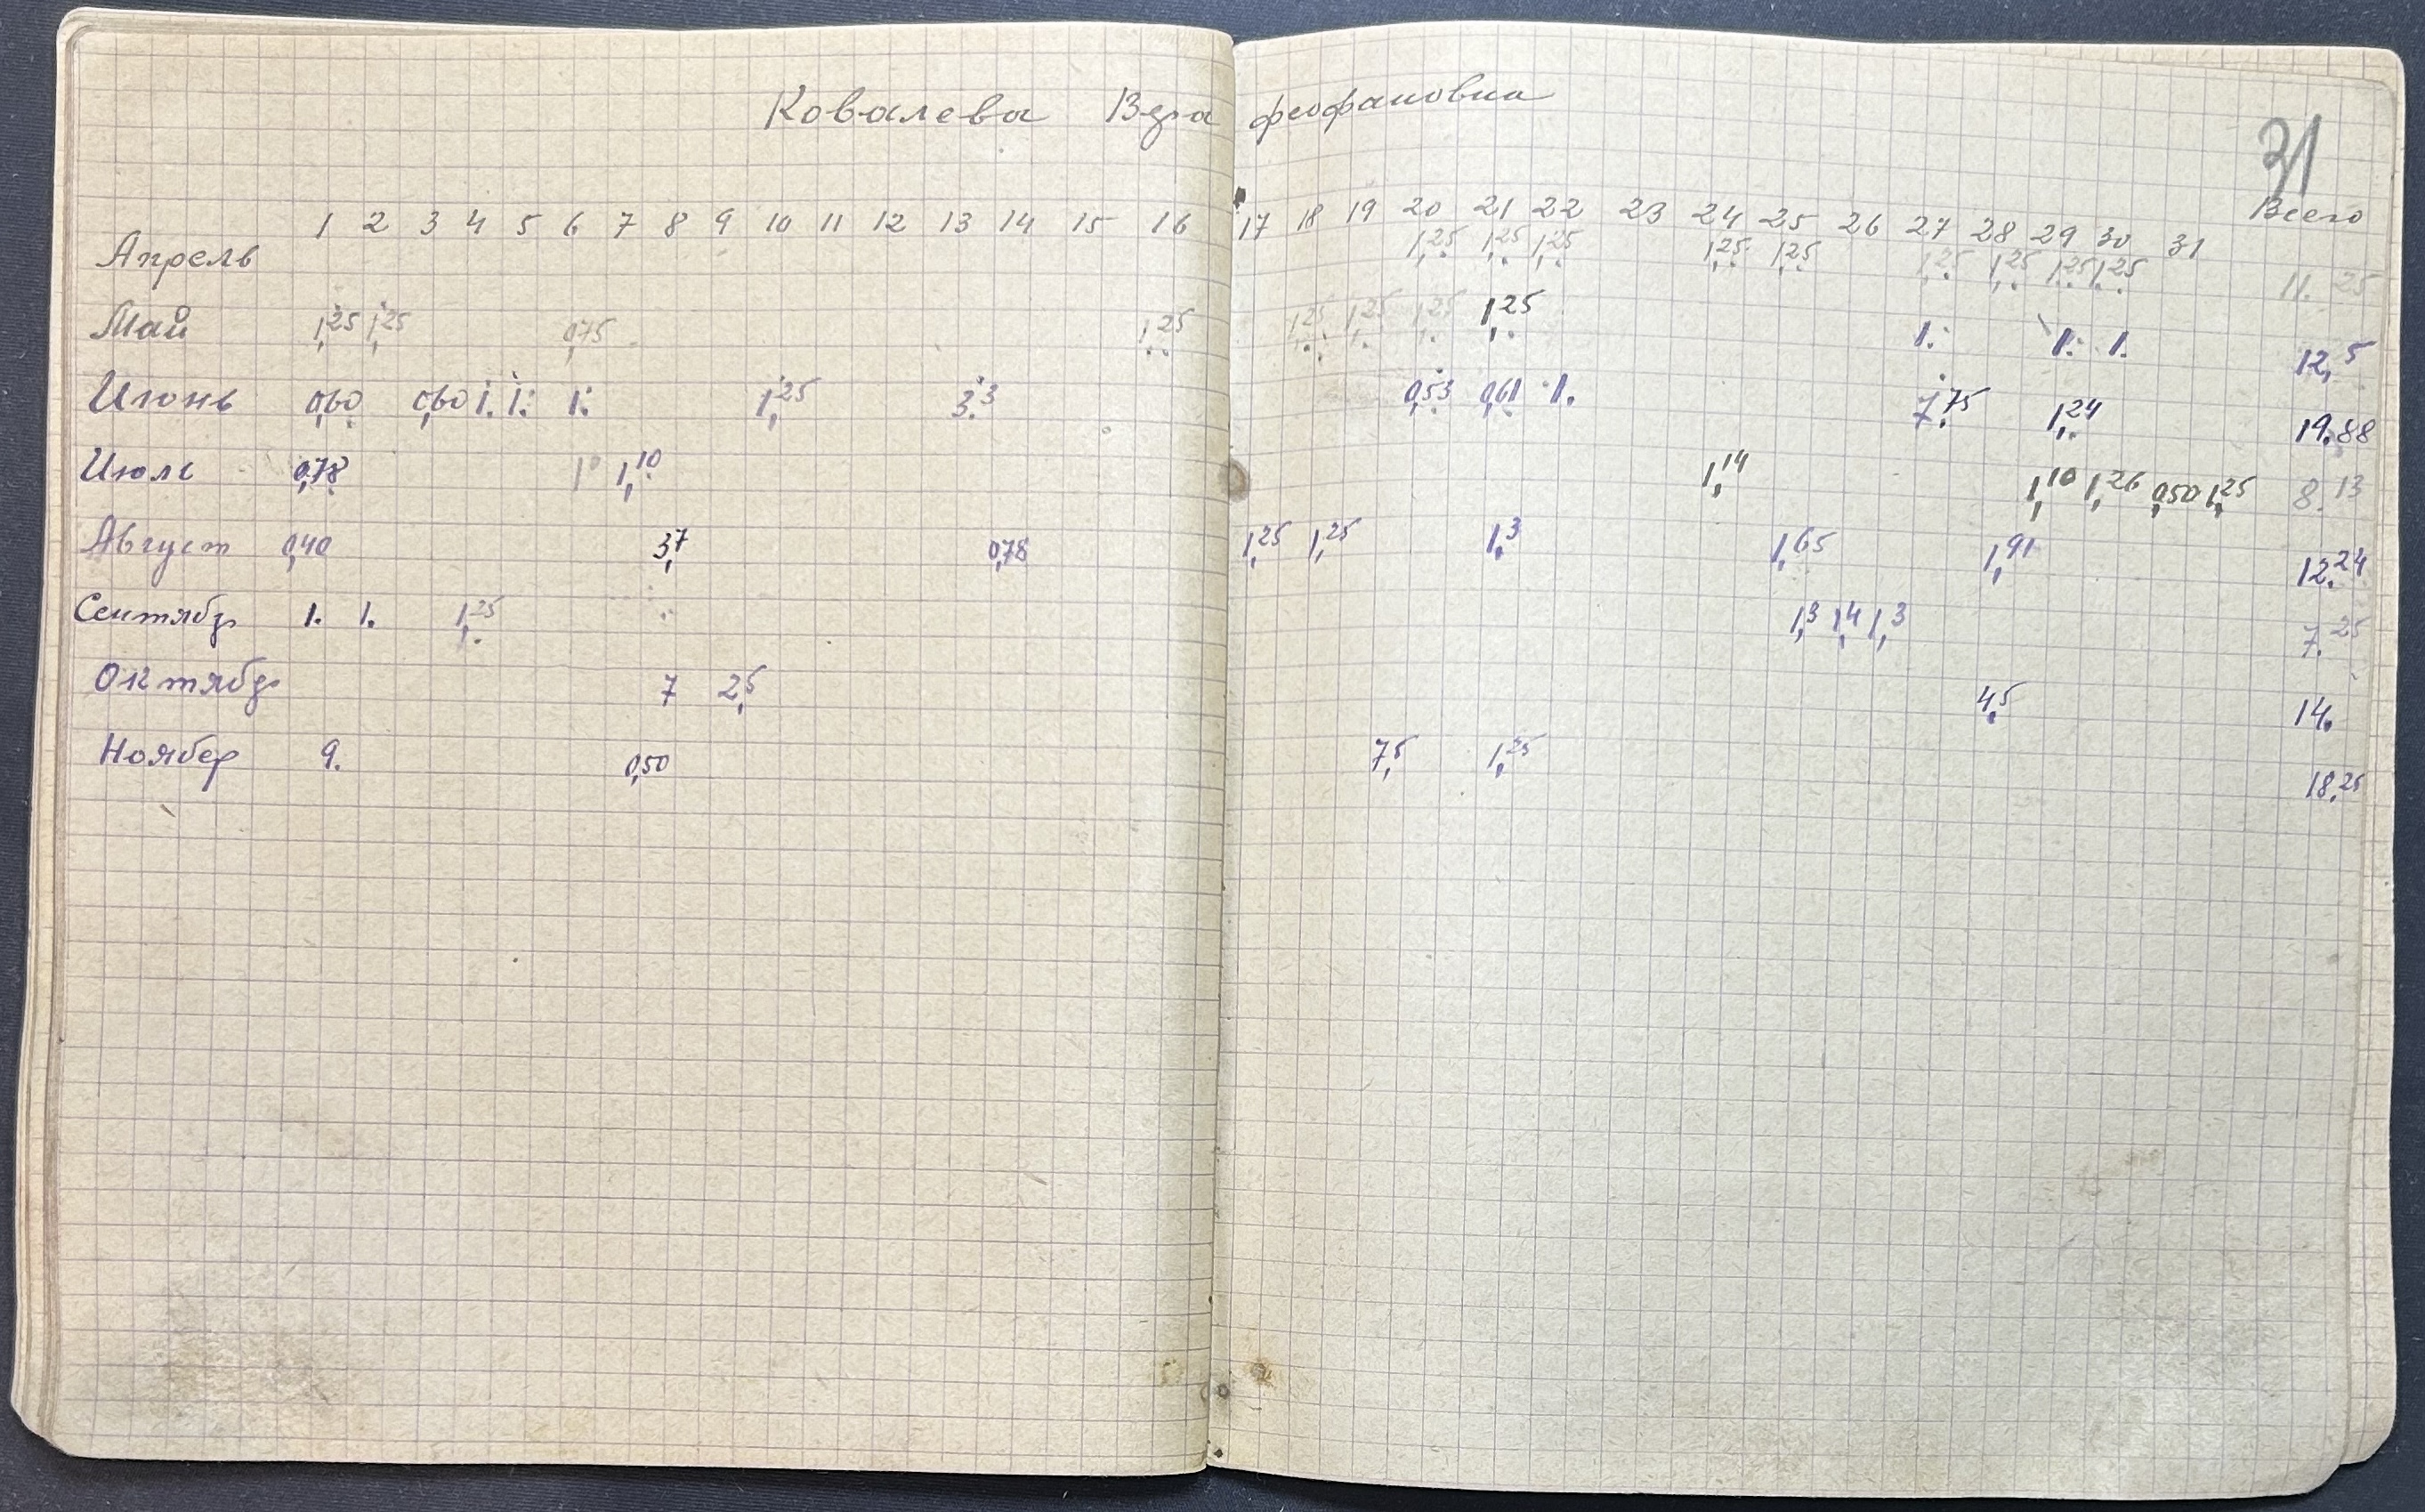 Ковалева Вера феофановна
31
1 2 3 4 5 6 7 8 9 10 11 12 13 14 15 16 17 18 19 20 21 22 23 24 25 26 27 28 29 30 31 Всего
Апрель 1,25 1,25 1,25 1,25 1,25 1,25 1,25 1,25 1,25 11.25
Май 1,25 1,25 0,75 1,25 1,25 1,25 1,25 1,25 1. 1. 1. 12,5
Июнь 0,60 0,60 1. 1. 1. 1,25 3.3 0,53 0,61 1. 7,75 1,24 19.88
Июль 0,78 1 1,10 1,14 1,10 1,26 0,50 1,25 8.13
Август 0,40 3,7 0,78 1,25 1,25 1,3 1,65 1,91 12.24
Сентябр 1. 1. 1,25 1,3 1,4 1,3 7.25
Октябр 7 2,5 4,5 14.
Ноябер 9. 0,50 7,5 1,25 18,25